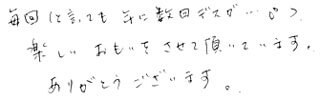 毎回と言っても年に数回デスガ…いつ
楽しいおもいをさせて頂いています。
ありがとうございます。